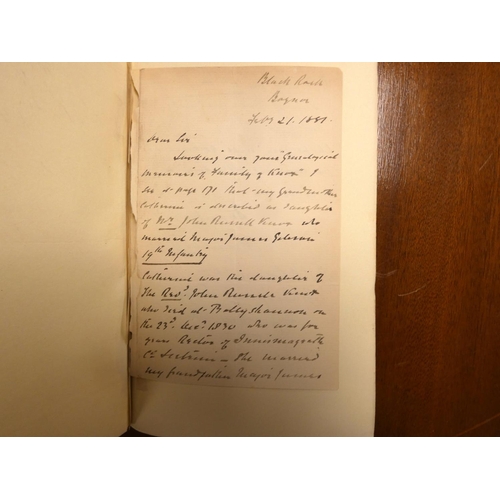 Black Rock
Bognor
Feby 21. 1881.
Dear Sir
Looking over your Genealogical
Memoirs of Family of Knox I
see at page 171 that my Grandmother
Catherine is described as daughter
of Mr. John Russell Knox who
married Major James Gibson
19th Infantry
Catherine was the daughter of
The Revd. John Russell Knox
who died at Ballyshannon on
the 23d. Decr. 1830 who was for
years Rector of Innismagrath
Co Leitrim - she married
my grandfather Major James